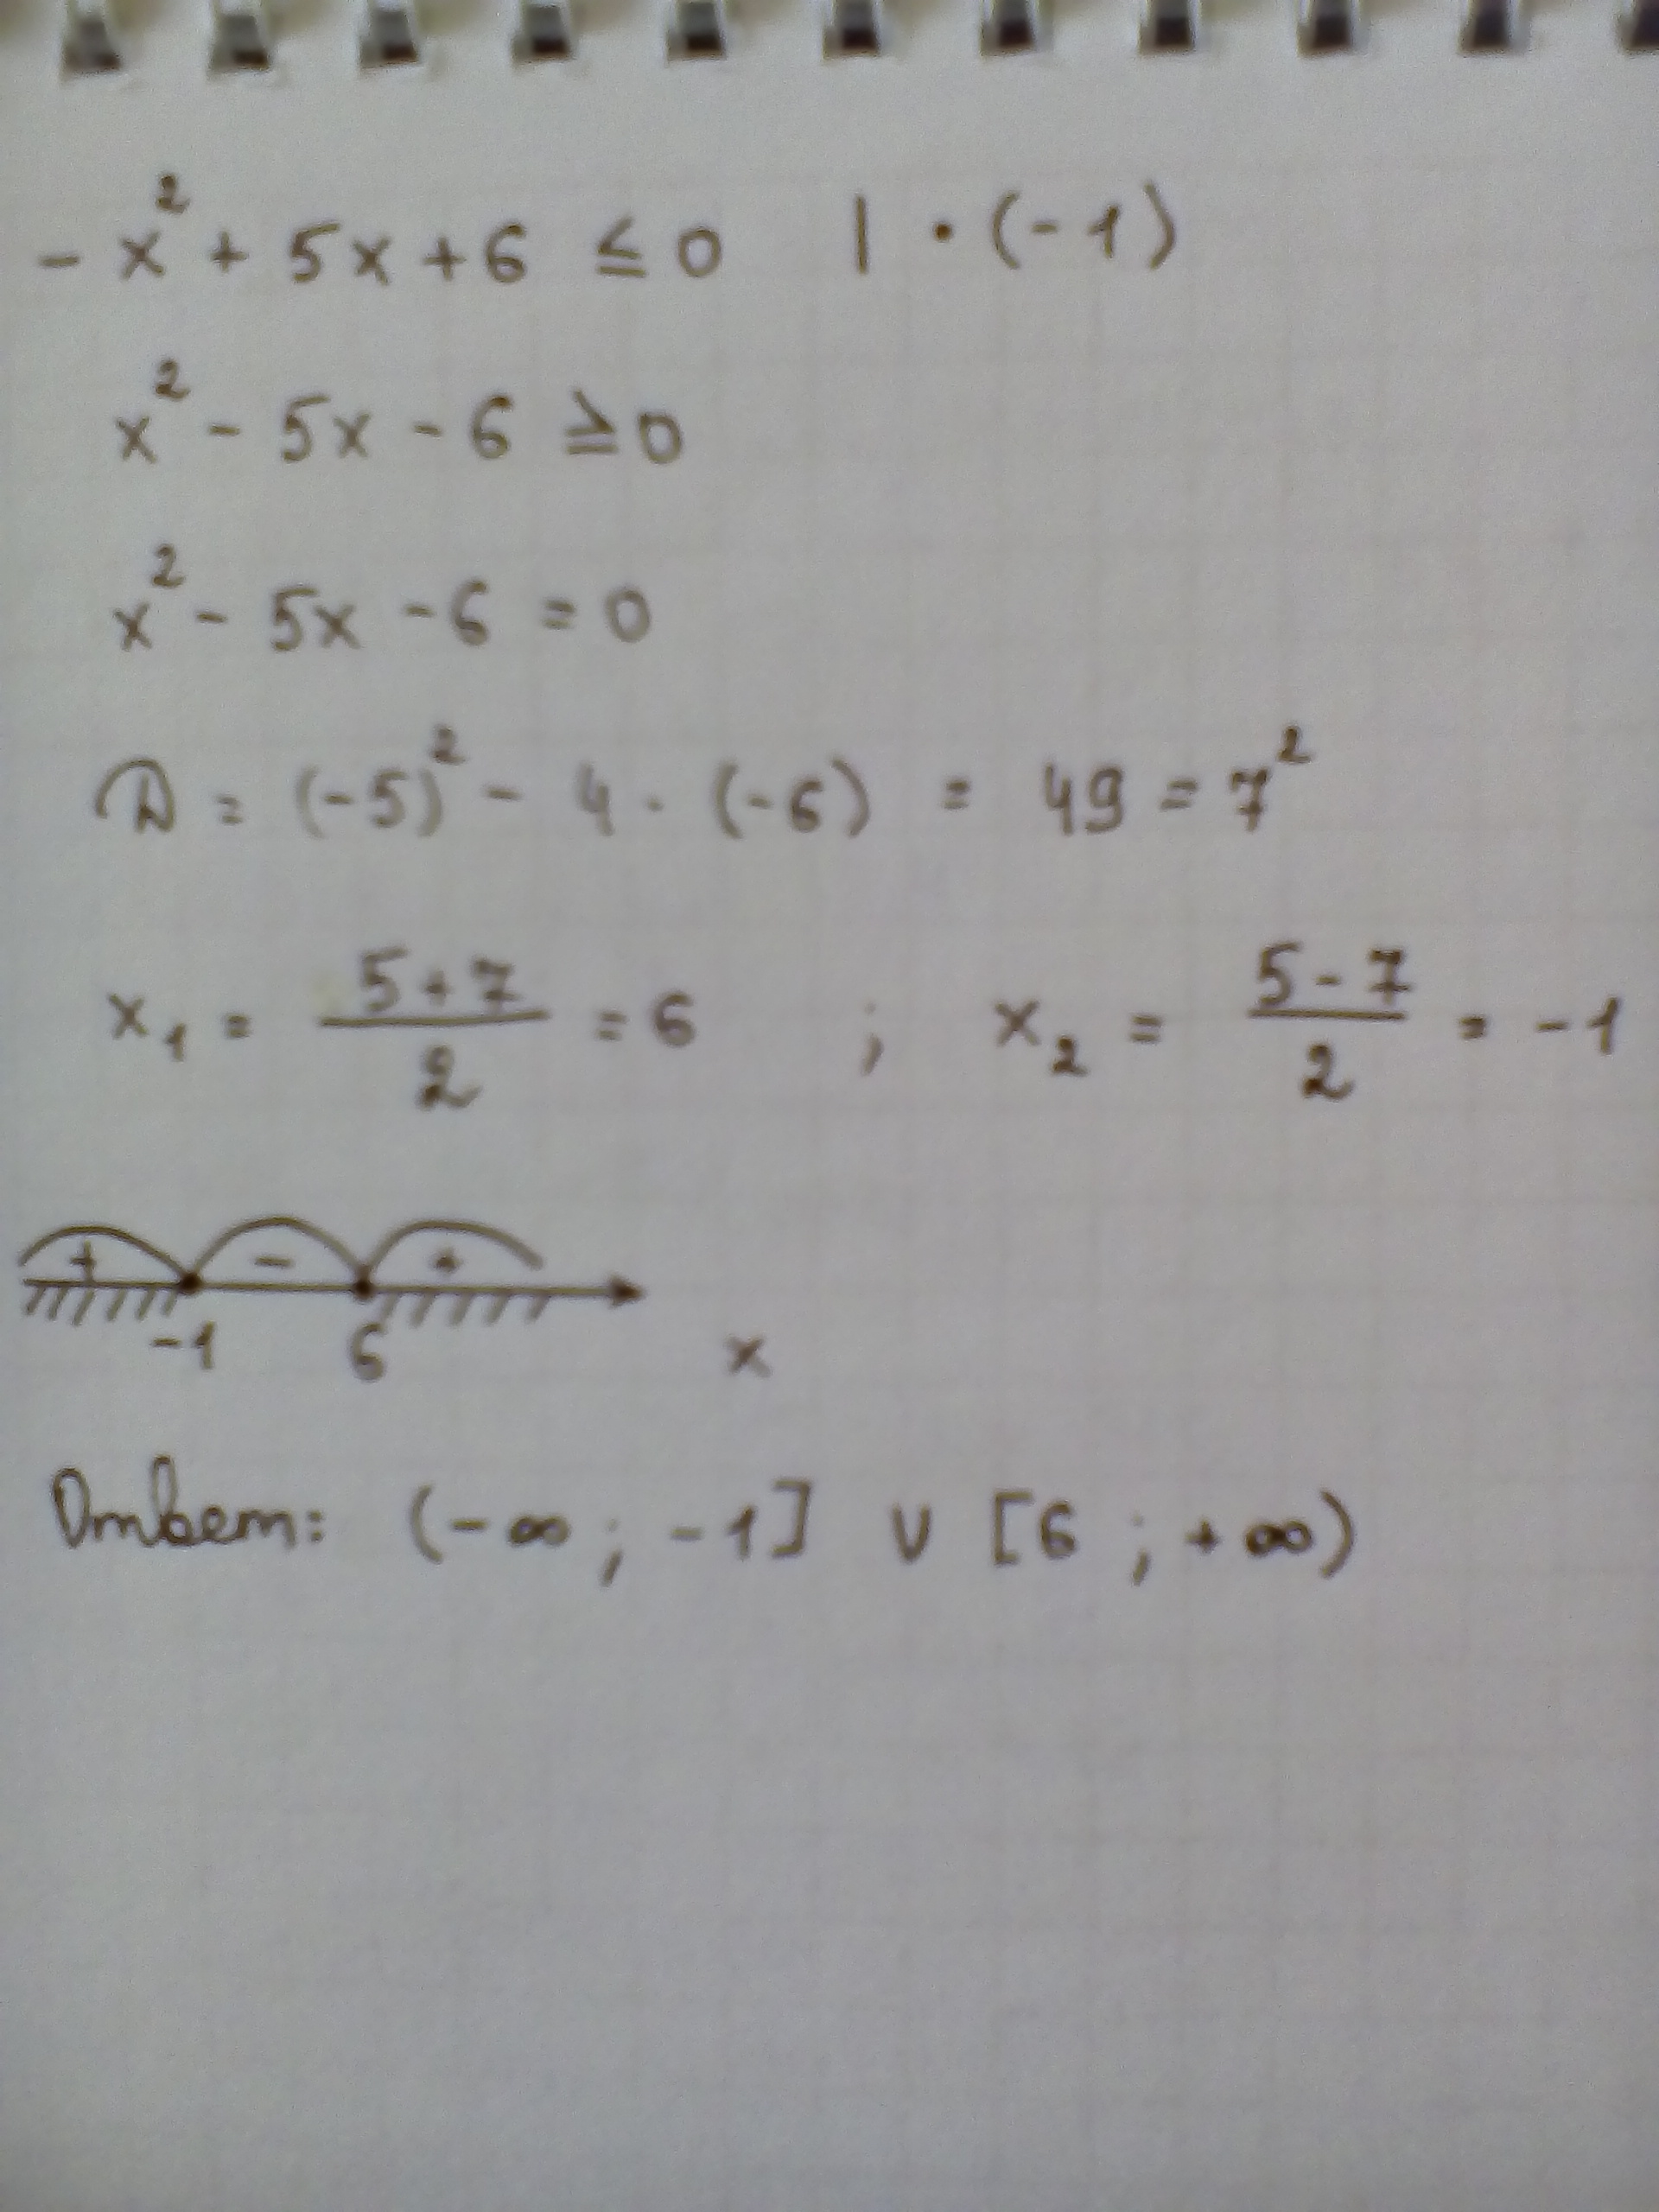 - x² + 5x + 6 ≤ 0 | · (-1)
x² - 5x - 6 ≥ 0
x² - 5x - 6 = 0
D = (-5)² - 4 · (-6) = 49 = 7²
x₁ = (5+7)/2 = 6 ; x₂ = (5-7)/2 = -1
+ - +
-1 6 x
Ответ: (-∞ ; -1] ∪ [6 ; +∞)